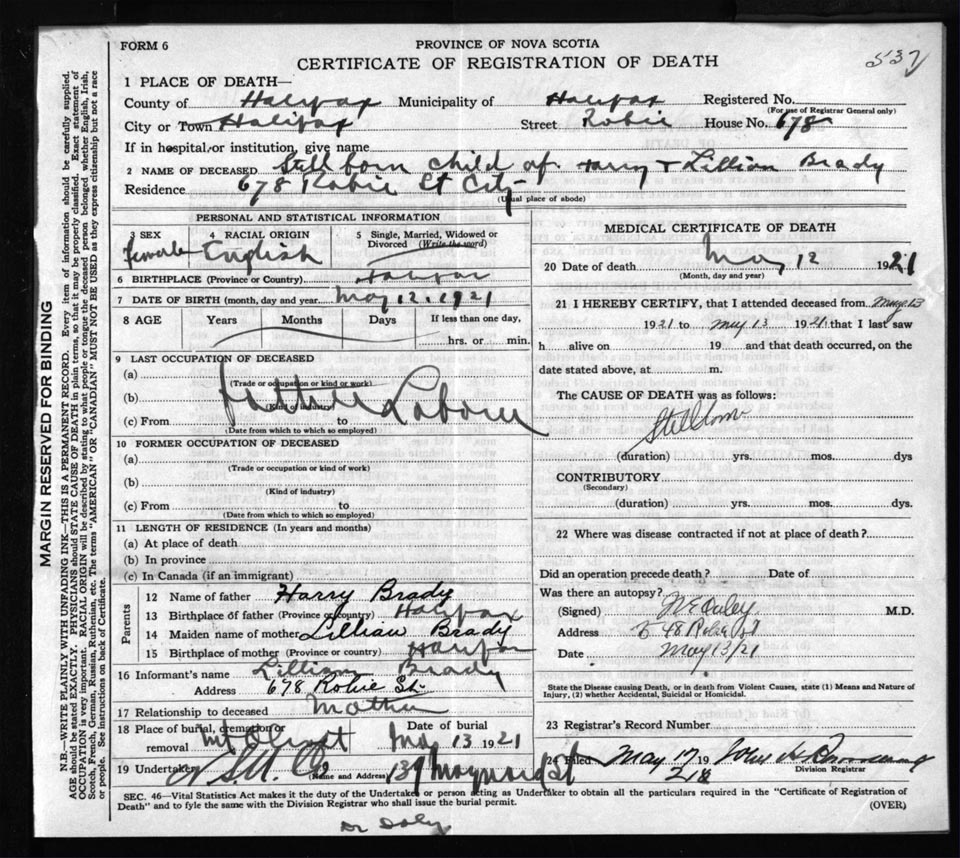 FORM 6
PROVINCE OF NOVA SCOTIA
CERTIFICATE OF REGISTRATION OF DEATH
537
1 PLACE OF DEATH—
County of Halifax Municipality of Halifax Registered No.
(For use of Registrar General only)
City or Town Halifax Street Robie House No. 678
If in hospital/or institution, give name
2 NAME OF DECEASED Still born child of Harry & Lillian Brady
Residence 678 Robie St City
(Usual place of abode)
PERSONAL AND STATISTICAL INFORMATION
3 SEX 4 RACIAL ORIGIN 5 Single, Married, Widowed or Divorced (Write the word)
female English
6 BIRTHPLACE (Province or Country) Halifax
7 DATE OF BIRTH (month, day and year) May 12, 1921
8 AGE Years Months Days If less than one day,
hrs. or min.
9 LAST OCCUPATION OF DECEASED
(a)
(Trade or occupation or kind or work)
(b) father Laborer
(Kind of industry)
(c) From to
(Date from which to which so employed)
10 FORMER OCCUPATION OF DECEASED
(a)
(Trade or occupation or kind of work)
(b)
(Kind of industry)
(c) From to
(Date from which to which so employed)
11 LENGTH OF RESIDENCE (In years and months)
(a) At place of death
(b) In province
(c) In Canada (if an immigrant)
Parents
12 Name of father Harry Brady
13 Birthplace of father (Province or country) Halifax
14 Maiden name of mother Lillian Brady
15 Birthplace of mother (Province or country) Halifax
16 Informant's name Lillian Brady
Address 678 Robie St.
17 Relationship to deceased Mother
18 Place of burial, cremation or removal Mt Olivet Date of burial May 13 1921
19 Undertaker (Name and Address) 139 Maynard St
MEDICAL CERTIFICATE OF DEATH
20 Date of death May 12 1921
(Month, day and year)
21 I HEREBY CERTIFY, that I attended deceased from May 13
1921 to May 13 1921 that I last saw
h alive on 19 and that death occurred, on the
date stated above, at m.
The CAUSE OF DEATH was as follows:
Stillborn
(duration) yrs. mos. dys
CONTRIBUTORY
(Secondary)
(duration) yrs. mos. dys.
22 Where was disease contracted if not at place of death?
Did an operation precede death? Date of
Was there an autopsy?
(Signed) M.D.
Address Robie St
Date May 13/21
State the Disease causing Death, or in death from Violent Causes, state (1) Means and Nature of
Injury, (2) whether Accidental, Suicidal or Homicidal.
23 Registrar's Record Number
24 Filed May 17 19
Division Registrar
SEC. 46—Vital Statistics Act makes it the duty of the Undertaker or person acting as Undertaker to obtain all the particulars required in the "Certificate of Registration of
Death" and to fyle the same with the Division Registrar who shall issue the burial permit.
(OVER)
Dr Daly
MARGIN RESERVED FOR BINDING
N.B.—WRITE PLAINLY WITH UNFADING INK—THIS IS A PERMANENT RECORD. Every item of information should be carefully supplied.
AGE should be stated EXACTLY. PHYSICIANS should STATE CAUSE OF DEATH in plain terms, so that it may be properly classified. Exact statement of
OCCUPATION is very important. RACIAL ORIGIN will be described by stating to what people or tongue the deceased person belonged whether English, Irish,
Scotch, French, German, Russian, Ruthenian, etc. The terms "AMERICAN" OR "CANADIAN" MUST NOT BE USED as they express citizenship but not a race
or people. See instructions on back of Certificate.